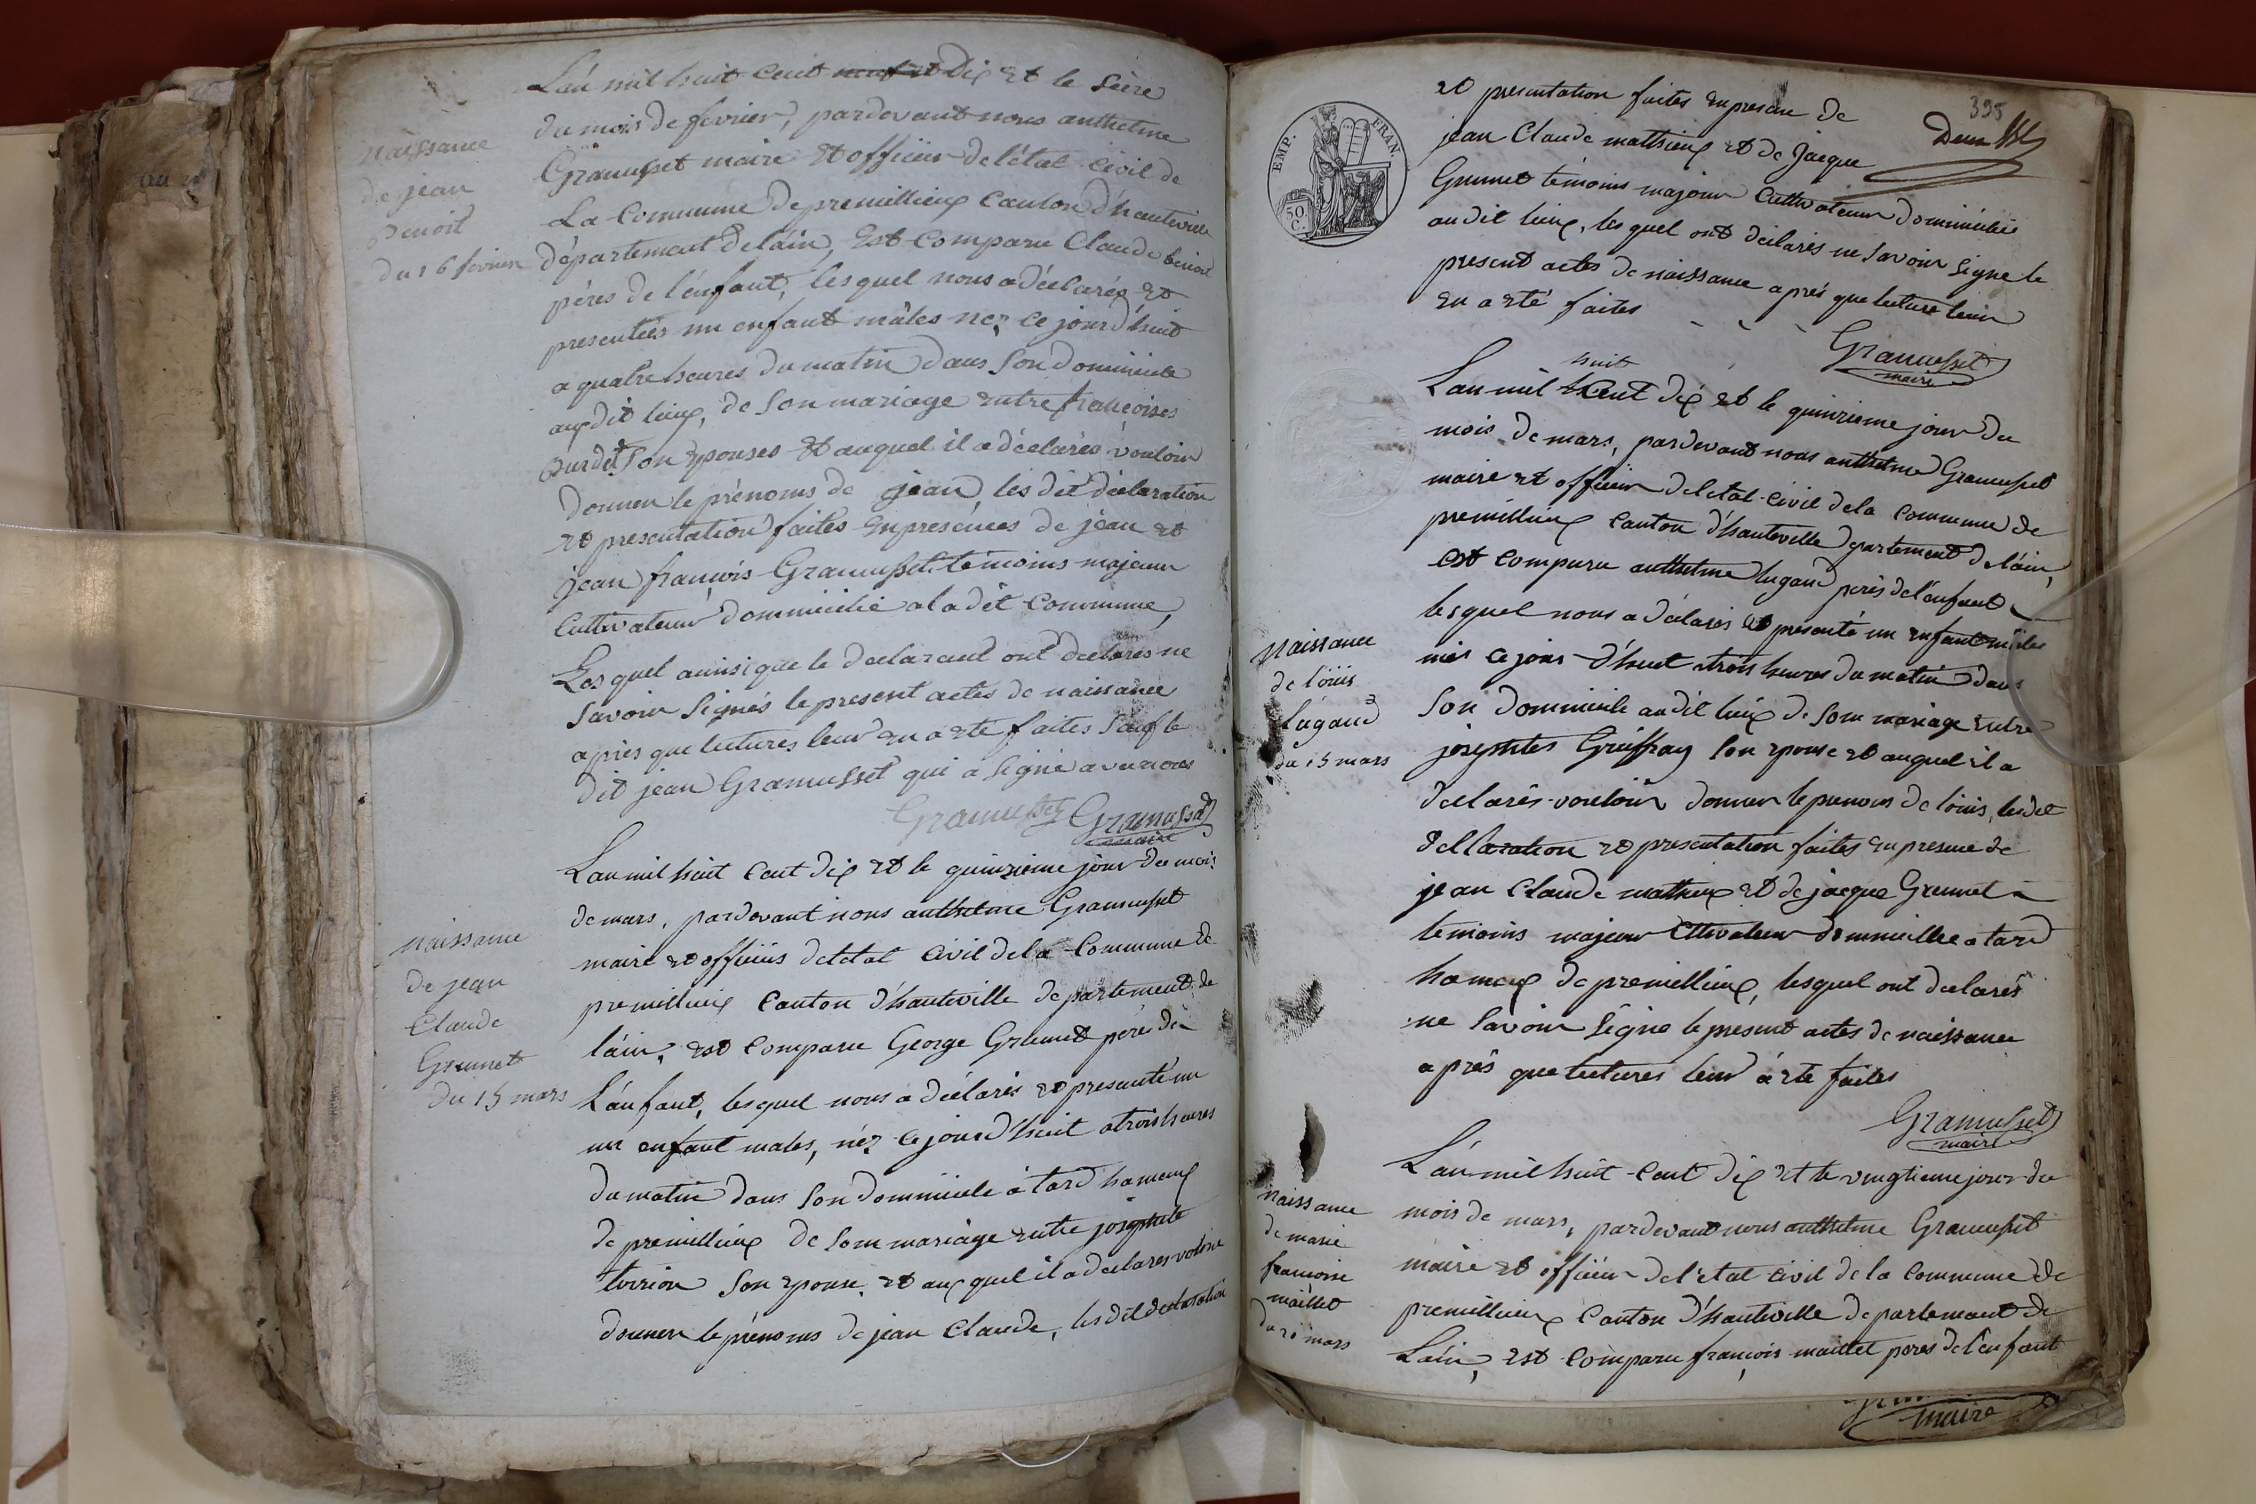 L'an mil huit cent neuf et Dix et le Seize
du mois de fevrier, pardevant nous anthelme
Gramusset maire et officier de l'état civil de
La Commune de premillieux Canton d'hauteville
département de l'ain, Est Comparu Claude benoit
péres de l'énfant, lesquel nous a déclarés et
presentées un enfant mâles nez ce jour d'huit
a quatre heures du matin dans Son domicile
audit lieux, de Son mariage entre francoises
Son epouses et auquel il a déclarés vouloir
donner le prénoms de jean les dit déclaration
et presentation faites en presénces de jean et
jean françois Gramusset témoins majeur
Cultivateur domicilié a la dit Commune,
Les quel ainsi que le declarant ont declarés ne
Savoir Signés le present actes de naissance
après que lectures leur en a eté faites Sauf le
dit jean Gramusset qui a Signé avec nous
Gramusset Gramusset
maire
naissance
de jean
Benoit
du 16 fevrier
L'an mil huit Cent dix et le quinzieme jour du mois
de mars, pardevant nous anthelme Gramusset
maire et officiers de l'etat Civil de la Commune de
premillieux Canton d'hauteville departement de
l'ain, est Comparu George Grumet pére de
L'anfant, lesquel nous a déclarés et presanté un
un enfant males, néz ce jourd'huit a trois heures
du matin dans Son domicile à tard hameux
de premillieux de Son mariage entre josephte
Son epouse, et auxquel il a declares
donner le prénoms de jean Claude, les dit declaration
naissance
de jean
Claude
Grumet
du 15 mars
395
EMP. FRAN.
50 C.
et presentation faites en presence de
jean Claude mathieux et de Jacque
Grumet témoins majeur Cultivateur domicilies
audit lieux, les quel ont déclarés ne Savoir Signe le
present actes de naissance après que lecture leur
en a eté faites
Gramusset
maire
huit
L'an mil Cent dix et le quinzieme jour du
mois de mars, pardevant nous anthelme Gramusset
maire et officier de l'etat civil de la commune de
premillieux Canton d'hauteville departement de l'ain,
est comparu anthelme lugand perés de l'enfant
lesquel nous a déclarés et presenté un enfant mâles
nés ce jour d'huit trois heures du matin dans
Son domicile audit lieux de Son mariage entre
josephtes Son epouse et auquel il a
declarés vouloir donner le prenoms de louis, les dit
declaration et presentation faites en presence de
jean Claude mathieux et de jacque Grumet
temoins majeur Cultivateur domicillie a tard
hameux de premillieux, lesquel ont declarés
ne Savoir Signe le present actes de naissance
après que lectures leur a eté faites
Gramusset
maire
Naissance
de loüis
lugand
du 15 mars
L'an mil huit Cent dix et le vingtieme jour du
mois de mars, pardevant nous anthelme Gramusset
maire et officier de l'etat civil de la Commune de
premillieux Canton d'hauteville departement de
L'ain, est Comparu françois maillet peres de l'enfant
naissance
de marie
francoise
maillet
du 20 mars
maire